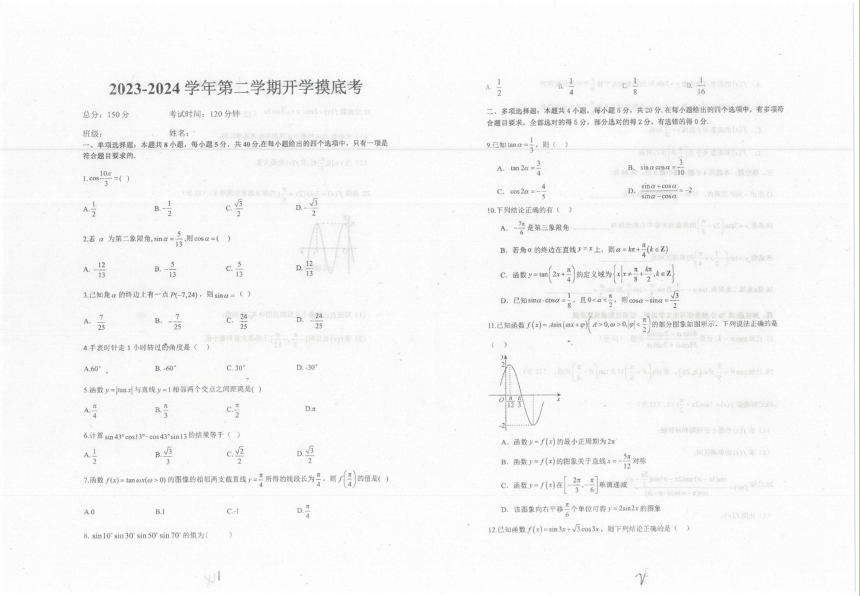 2023-2024 学年第二学期开学摸底考
总分：150分 考试时间：120分钟
班级： 姓名：
一、单项选择题：本题共8小题，每小题5分，共40分.在每小题给出的四个选项中，只有一项是
符合题目要求的.
1.cos 10π/3 =( )
A. 1/2 B. -1/2 C. √3/2 D. -√3/2
2.若 α 为第二象限角,sin α = 5/13,则cos α =( )
A. -12/13 B. -5/13 C. 5/13 D. 12/13
3.已知角α的终边上有一点P(-7,24)，则sin α =（ ）
A. 7/25 B. -7/25 C. 24/25 D. -24/25
4.手表时针走1小时转过的角度是（ ）
A.60° B.-60° C.30° D.-30°
5.函数 y=|tan x| 与直线 y=1 相邻两个交点之间距离是( )
A. π/4 B. π/3 C. π/2 D.π
6.计算 sin 43° cos13° - cos 43° sin 13 的结果等于（ ）
A. 1/2 B. √3/3 C. √2/2 D. √3/2
7.函数 f(x)=tan ωx(ω>0) 的图像的相邻两支截直线 y=π/4 所得的线段长为 π/4，则 f(π/4) 的值是( )
A.0 B.1 C.-1 D. π/4
8. sin10° sin 30° sin 50° sin 70° 的值为（ ）
1
A. 1/2 B. 1/4 C. 1/8 D. 1/16
二、多项选择题：本题共4小题，每小题5分，共20分.在每小题给出的四个选项中，有多项符
合题目要求。全部选对的得5分，部分选对的得2分，有选错的得0分.
9.已知 tan α = 1/3，则（ ）
A. tan 2α = 3/4 B. sin α cos α = 3/10
C. cos 2α = -4/5 D. (sin α + cos α)/(sin α - cos α) = -2
10.下列结论正确的有（ ）
A. -7π/6 是第三象限角
B. 若角α的终边在直线 y=x 上，则 α=kπ+π/4 (k∈Z)
C. 函数 y=tan(2x+π/4) 的定义域为 {x|x≠π/8+kπ/2,k∈Z}
D. 已知sinα·cosα=1/8，且0<α<π/2，则cosα-sinα=√3/2
11.已知函数 f(x)=Asin(ωx+φ)(A>0,ω>0,|φ|<π/2) 的部分图象如图所示，下列说法正确的是
（ ）
y
2
O π/12 π/3 x
-2
A. 函数 y=f(x) 的最小正周期为2π
B. 函数 y=f(x) 的图象关于直线 x=-5π/12 对称
C. 函数 y=f(x) 在 [-2π/3,-π/6] 单调递减
D. 该图象向右平移 π/6 个单位可得 y=2sin2x 的图象
12.已知函数 f(x)=sin 3x+√3 cos 3x，则下列结论正确的是（ ）